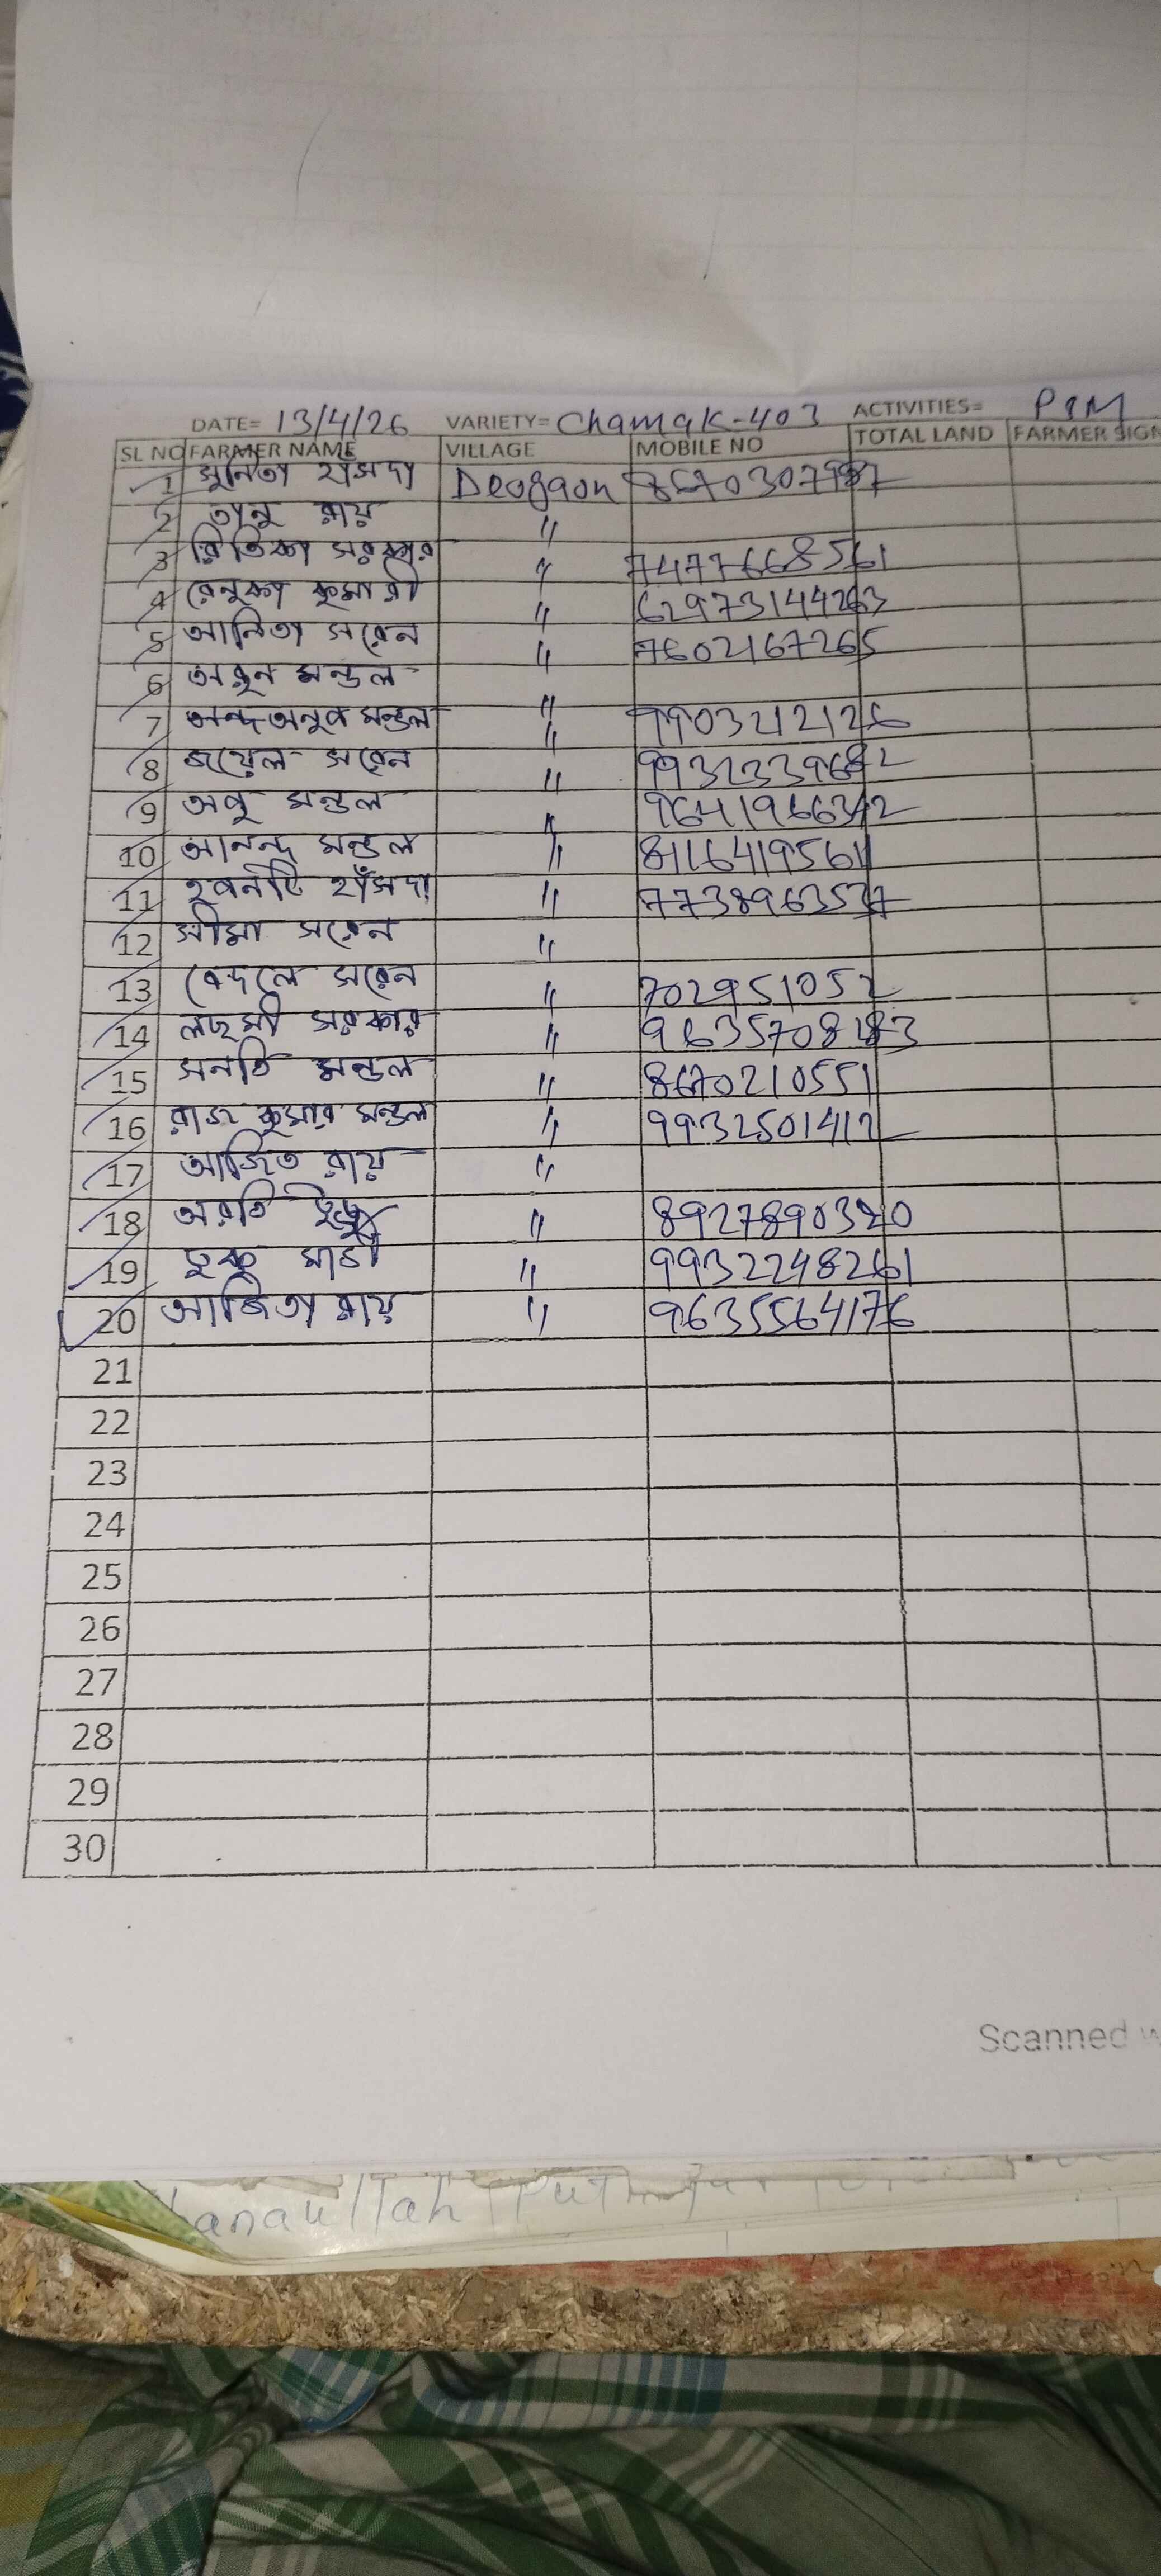 DATE= 13/4/26 VARIETY= Chamak-403 ACTIVITIES= PSM
SL NO FARMER NAME VILLAGE MOBILE NO TOTAL LAND FARMER SIGN
1 সুনিতা হাঁসদা Deogaon 8670307987
2 তানু রায় "
3 রিতিকা সরকার " 7477668561
4 রেনুকা কুমারী " 62973144263
5 আনিতা সরেন " 7602167265
6 অরুন মন্ডল "
7 মন্ডল " 9903212126
8 জয়েল সরেন " 9932339682
9 অনু মন্ডল " 9641966342
10 আনন্দ মন্ডল " 8116419561
11 হাঁসদা " 7738963537
12 সীমা সরেন "
13 সরেন " 702951052
14 লছমী সরকার " 9635708183
15 সনতি মন্ডল " 8670210551
16 রাজ কুমার মন্ডল " 9932501412
17 আজিত রায় "
18 অরতি " 8927890320
19 " 9932248261
20 আজিতা রায় " 9635564176
21
22
23
24
25
26
27
28
29
30
Scanned